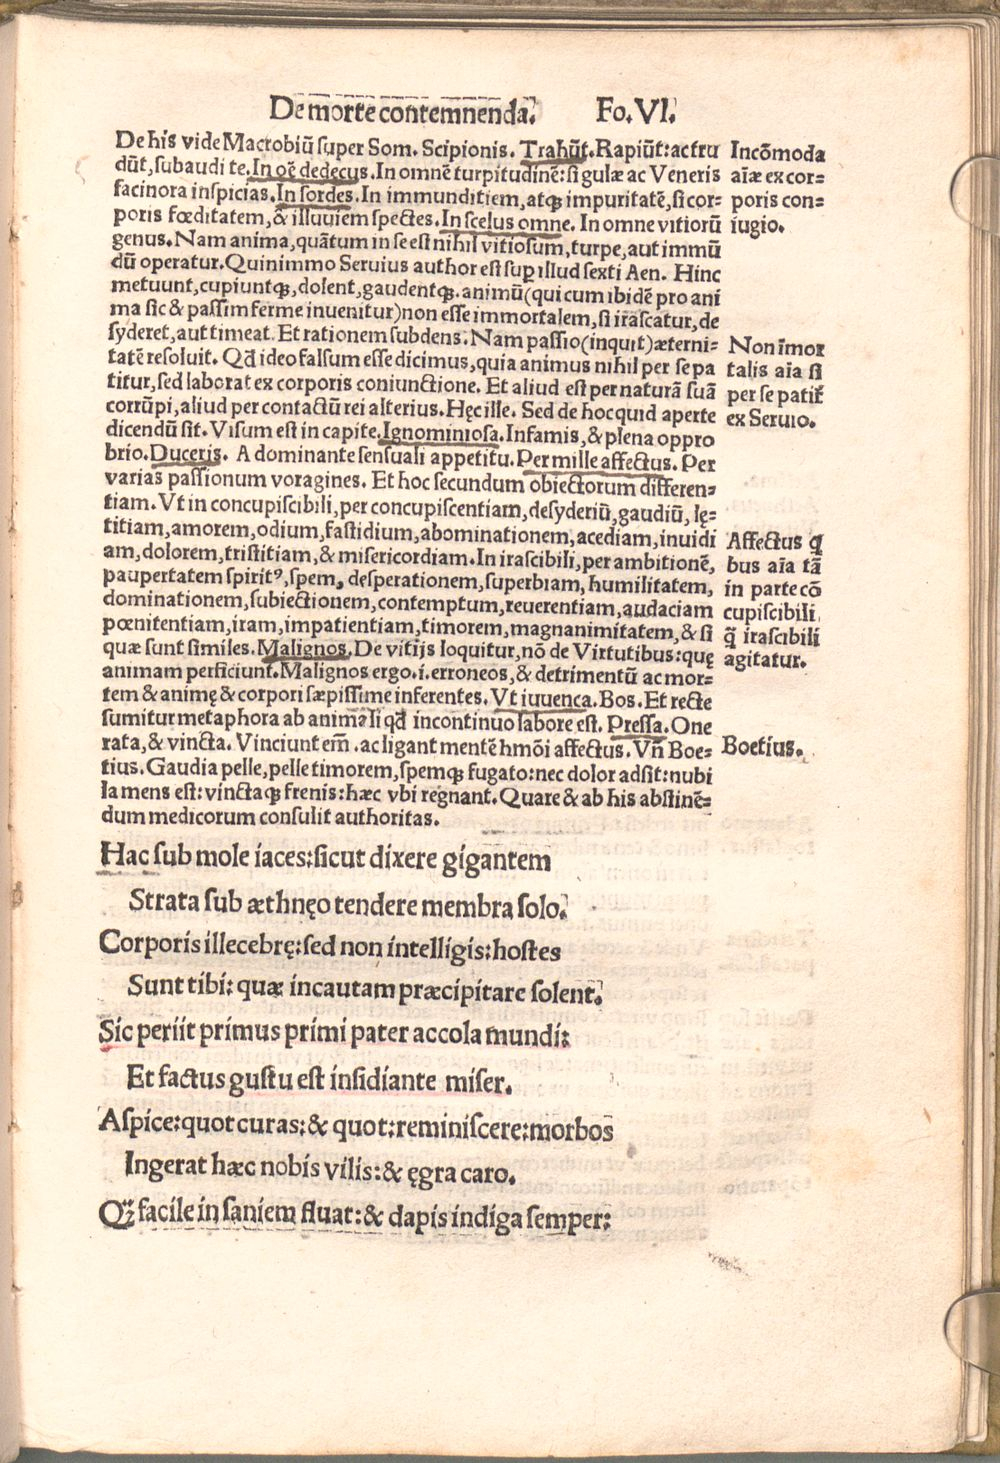 De morte contemnenda. Fo. VI.
De his vide Macrobiū super Som. Scipionis. Trahūt. Rapiūt: actru
dūt, subaudi te. In oē dedecus. In omnē turpitudinē: si gulæ ac Veneris
facinora inspicias. In sordes. In immunditiem, atqꝫ impuritatē, si cor-
poris fœditatem, & illuuiem spectes. In scelus omne. In omne vitiorū
genus. Nam anima, quātum in se est nihil vitiosum, turpe, aut immū
dū operatur. Quinimmo Seruius author est suꝑ illud sexti Aen. Hinc
metuunt, cupiuntqꝫ, dolent, gaudentqꝫ. animū (qui cum ibidē pro ani
ma sic & passim ferme inuenitur) non esse immortalem, si irascatur, de
syderet, aut timeat. Et rationem subdens. Nam passio (inquit) æterni-
tatē resoluit. Qđ ideo falsum esse dicimus, quia animus nihil per se pa
titur, sed laborat ex corporis coniunctione. Et aliud est per naturā suā
corrūpi, aliud per contactū rei alterius. Hęc ille. Sed de hoc quid aperte
dicendū sit. Visum est in capite. Ignominiosa. Infamis, & plena oppro
brio. Duceris. A dominante sensuali appetitu. Per mille affectus. Per
varias passionum voragines. Et hoc secundum obiectorum differen-
tiam. Vt in concupiscibili, per concupiscentiam, desyderiū, gaudiū, lę-
titiam, amorem, odium, fastidium, abominationem, acediam, inuidi
am, dolorem, tristitiam, & misericordiam. In irascibili, per ambitionē,
paupertatem spiritꝰ, spem, desperationem, superbiam, humilitatem,
dominationem, subiectionem, contemptum, reuerentiam, audaciam
pœnitentiam, iram, impatientiam, timorem, magnanimitatem, & si
quæ sunt similes. Malignos. De vitijs loquitur, nō de Virtutibus: quę
animam perficiunt. Malignos ergo .i. erroneos, & detrimentū ac mor-
tem & animę & corpori sæpissime inferentes. Vt iuuenca. Bos. Et recte
sumitur metaphora ab animali qđ in continuo labore est. Pressa. One
rata, & vincta. Vinciunt em̄ . ac ligant mentē hmōi affectus. Vn̄ Boe-
tius. Gaudia pelle, pelle timorem, spemqꝫ fugato: nec dolor adsit: nubi
la mens est: vinctaqꝫ frenis: hæc vbi regnant. Quare & ab his abstinē-
dum medicorum consulit authoritas.
Hac sub mole iaces: sicut dixere gigantem
Strata sub æthnęo tendere membra solo.
Corporis illecebrę: sed non intelligis: hostes
Sunt tibi: quæ incautam præcipitare solent.
Sic periit primus primi pater accola mundi:
Et factus gustu est insidiante miser.
Aspice: quot curas: & quot: reminiscere: morbos
Ingerat hæc nobis vilis: & ęgra caro.
Qꝫ facile in saniem fluat: & dapis indiga semper:
Incōmoda
aīæ ex cor-
poris con-
iugio.
Non īmor
talis aīa si
per se patit᷑
ex Seruio.
Affectus q̄
bus aīa tā
in parte cō
cupiscibili
q̄ irascibili
agitatur.
Boetius.